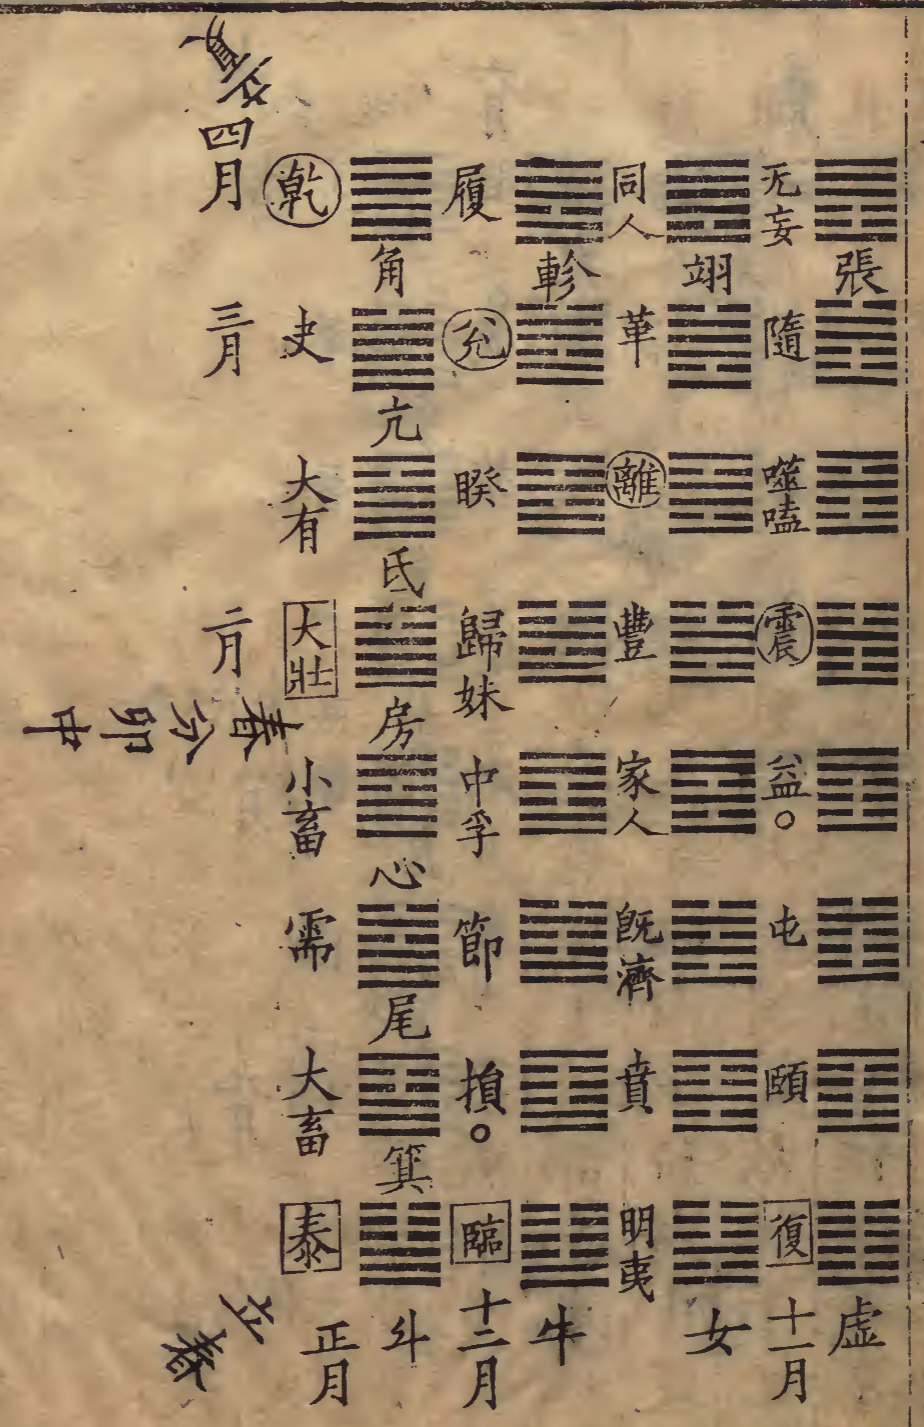 張
虛
无妄
隨
噬嗑
震
益○
屯
頤
復
十一月
翊
女
同人
革
離
豐
家人
既濟
賁
明夷
軫
牛
履
兊
睽
歸妹
中孚
節
損○
臨
十二月
角
亢
氐
房
心
尾
箕
斗
乾
夬
大有
大壯
小畜
需
大畜
泰
正月
立夏
四月
三月
二月
春分卯中
立春